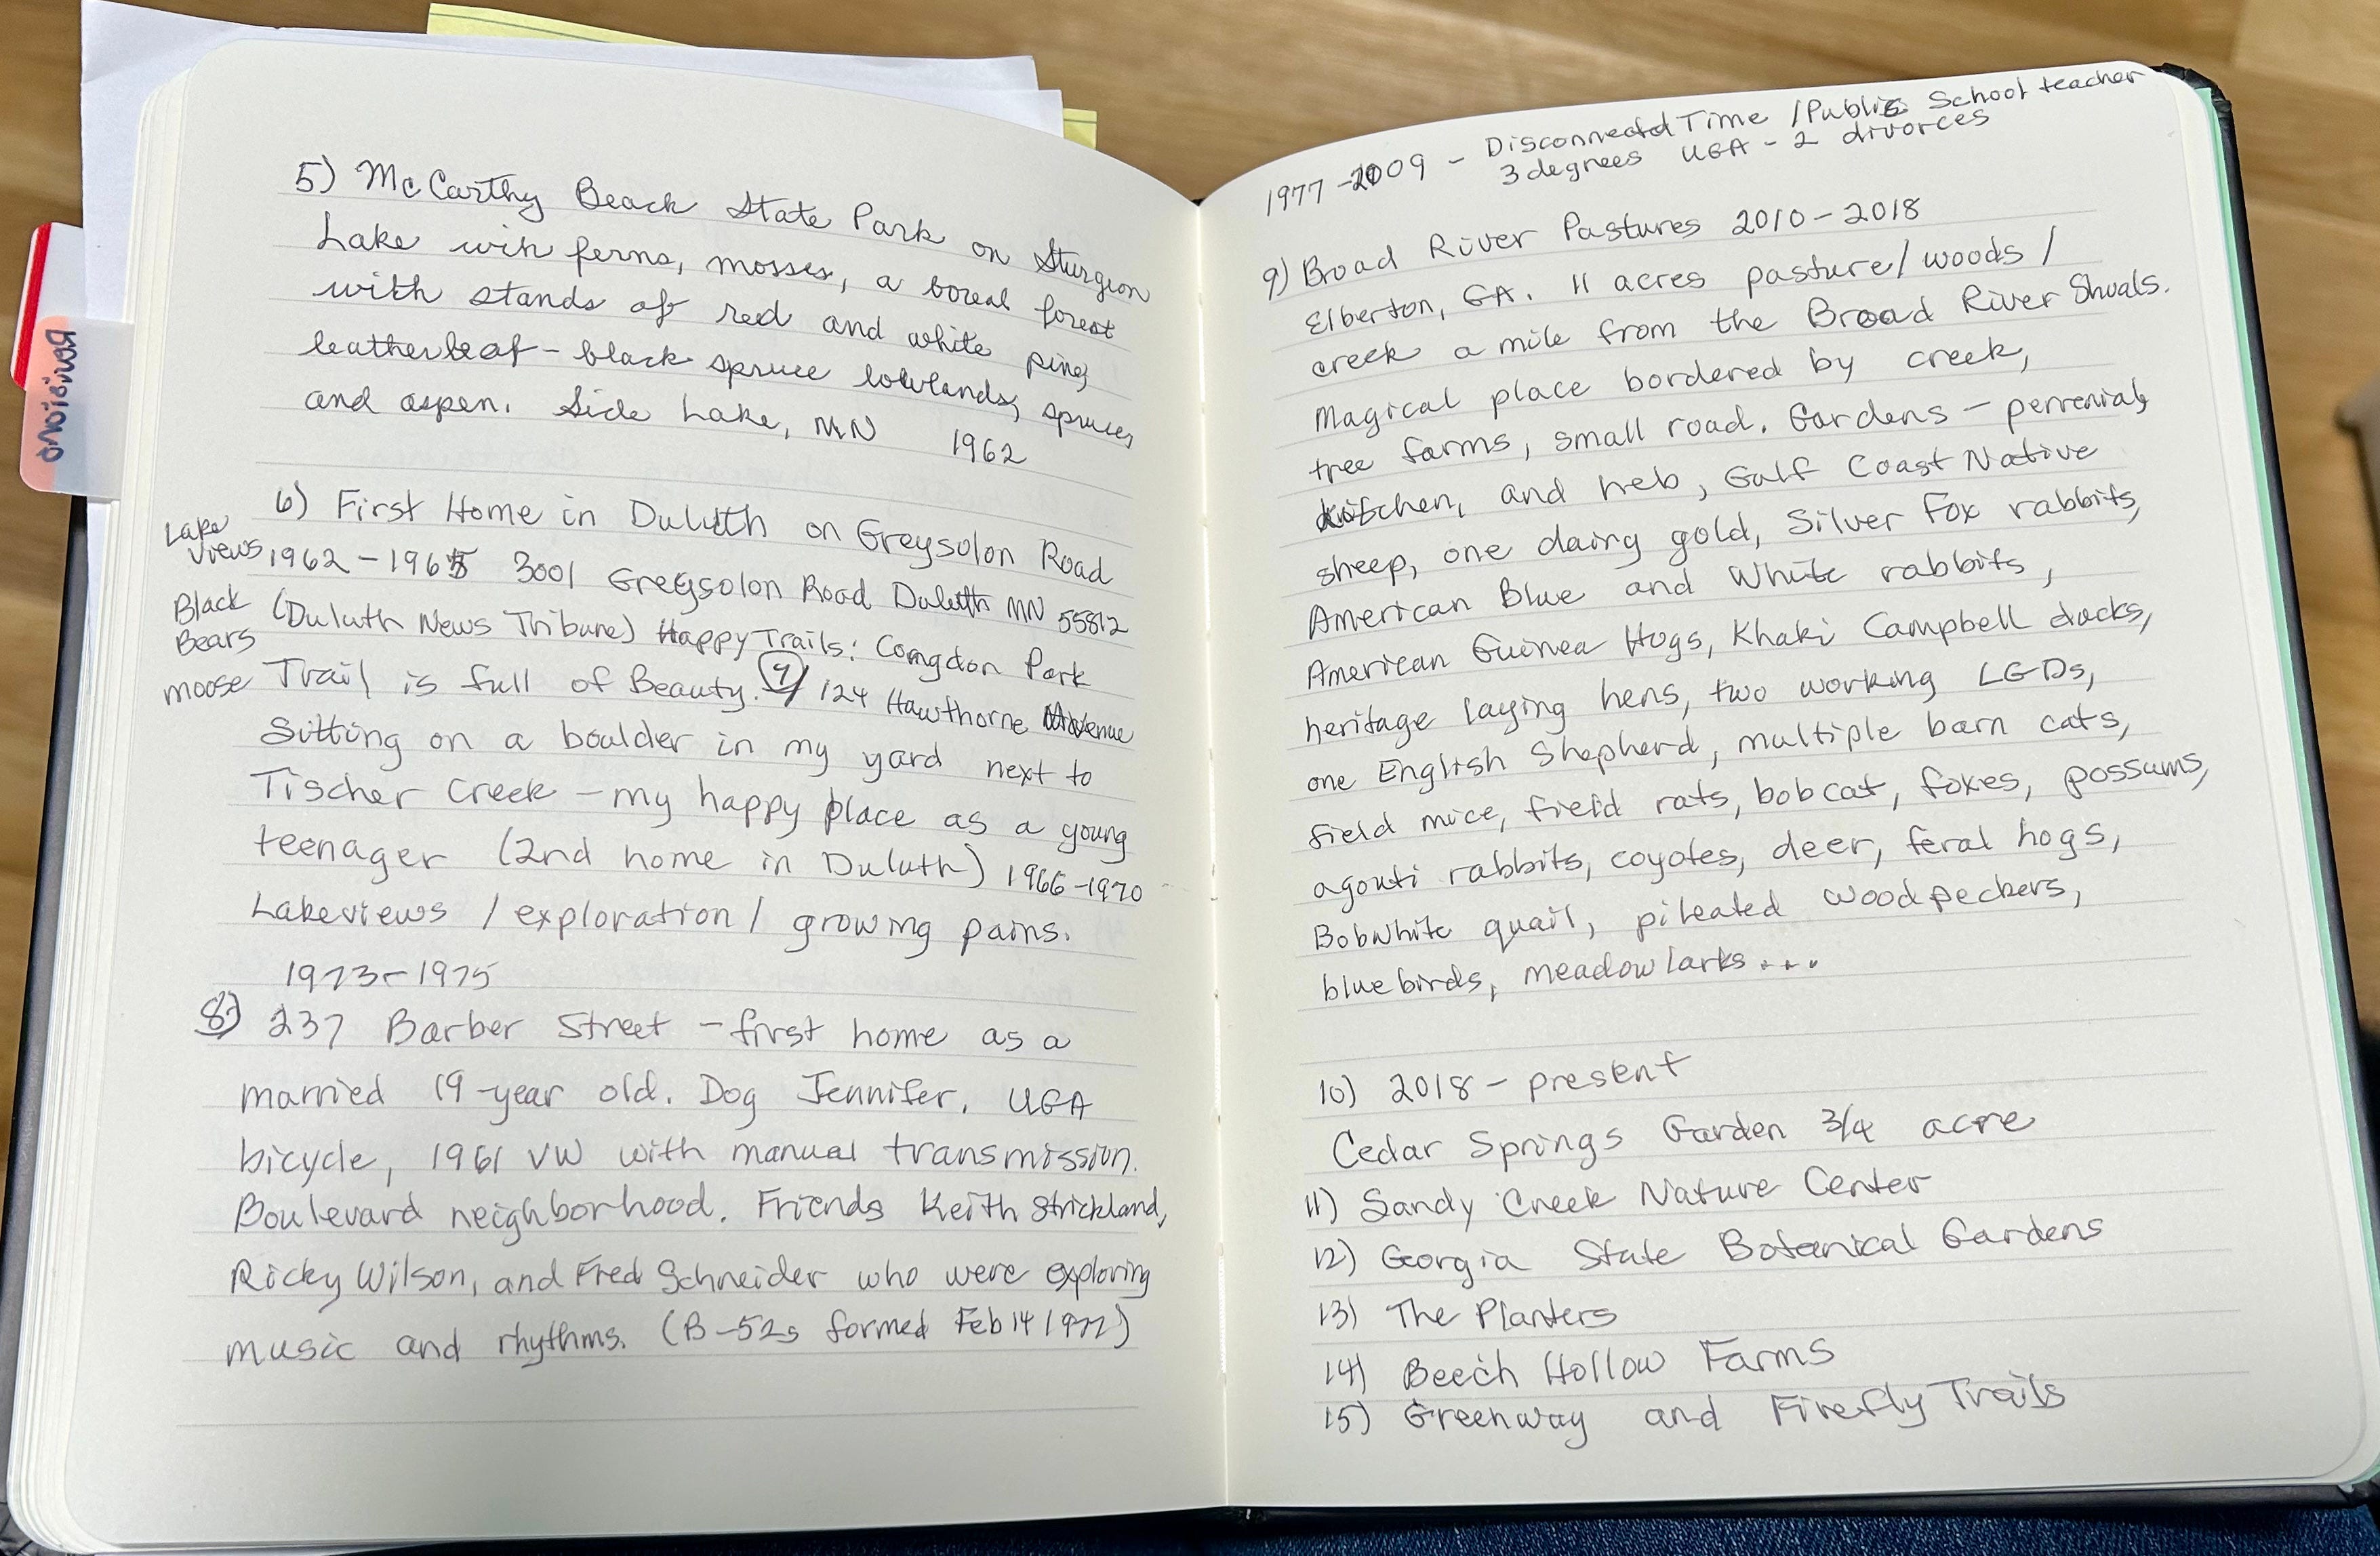 5) McCarthy Beach State Park on Sturgeon
Lake wih ferns, mosses, a boreal forest
with stands of red and white pine,
leatherleaf - black spruce lowlands, spruce,
and aspen. Side Lake, MN 1962
6) First Home in Duluth on Greysolon Road
Lake
Views
1962 - 1965 3001 Greysolon Road Duluth MN 55812
Black
Bears
(Duluth News Tribune) Happy Trails: Congdon Park
moose
Trail is full of Beauty. 7) 124 Hawthorne Avenue
Sitting on a boulder in my yard next to
Tischer Creek - my happy place as a young
teenager (2nd home in Duluth) 1966-1970
Lakeviews / exploration / growing pains.
1973 - 1975
8) 237 Barber Street - first home as a
married 19-year old. Dog Jennifer, UGA
bicycle, 1961 VW with manual transmission.
Boulevard neighborhood. Friends Keith Strickland,
Ricky Wilson, and Fred Schneider who were exploring
music and rhythms. (B-52s formed Feb 14 1977)
Revisions
1977-2009 - Disconnected Time / Public School teacher
3 degrees UGA - 2 divorces
9) Broad River Pastures 2010-2018
Elberton, GA. 11 acres pasture/woods/
creek a mile from the Broad River Shoals.
Magical place bordered by creek,
tree farms, small road. Gardens - perrenial,
kitchen, and hreb, Gulf Coast Native
sheep, one dairy gold, Silver Fox rabbits,
American Blue and White rabbits,
American Guinea Hogs, Khaki Campbell ducks,
heritage laying hens, two working LGDs,
one English Shepherd, multiple barn cats,
field mice, field rats, bobcat, foxes, possums,
agouti rabbits, coyotes, deer, feral hogs,
Bobwhite quail, pileated woodpeckers,
bluebirds, meadowlarks...
10) 2018 - present
Cedar Springs Garden 3/4 acre
11) Sandy Creek Nature Center
12) Georgia State Botanical Gardens
13) The Planters
14) Beech Hollow Farms
15) Greenway and Firefly Trails